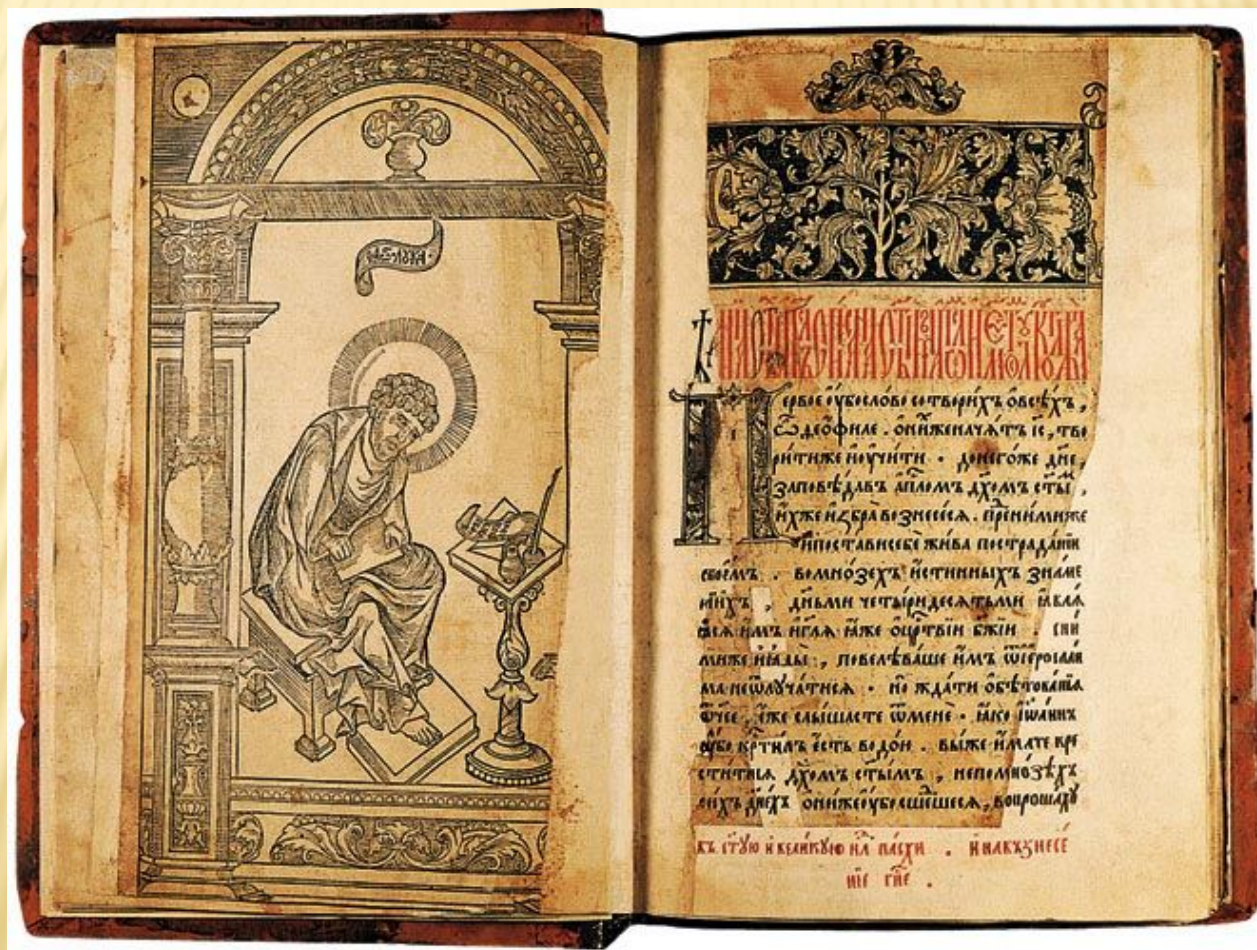 лѹка
Первое ѹбо слово сотворихъ ѻ всѣхъ ,
ѽ ѳеѻфиле . ѻ нихже начатъ і҃с , тво
рити же и ѹчити . до негоже дн҃е ,
заповѣдавъ ап҃лѡмъ дх҃омъ ст҃ы ,
ихже избра вознесесѧ . пред ними же
и постави себе жива по страданїи
своемъ . во мнозехъ истинныхъ знаме
нїихъ , дньми четыридесѧтьми ꙗвлѧ
ꙗсѧ имъ и гл҃ѧ ꙗже ѻ цр҃твїи бж҃їи . с ни
миже и ꙗды , повелѣваше имъ ѿ їерѹсали
ма не ѿлѹчатисѧ . но ждати ѻбѣтованїѧ
ѿчее , еже слышасте ѿ мене . ꙗко їѡаннъ
ѹбо кр҃тилъ есть водою . вы же имате кре
ститисѧ дх҃омъ ст҃ымъ , не по мнозѣхъ
сихъ дн҃ехъ ѻни же ѹбо сшедшесѧ , вопрошахѹ
въ ст҃ѹю и великѹю нл҃ пасхи . и на възнесе
нїе гн҃е .